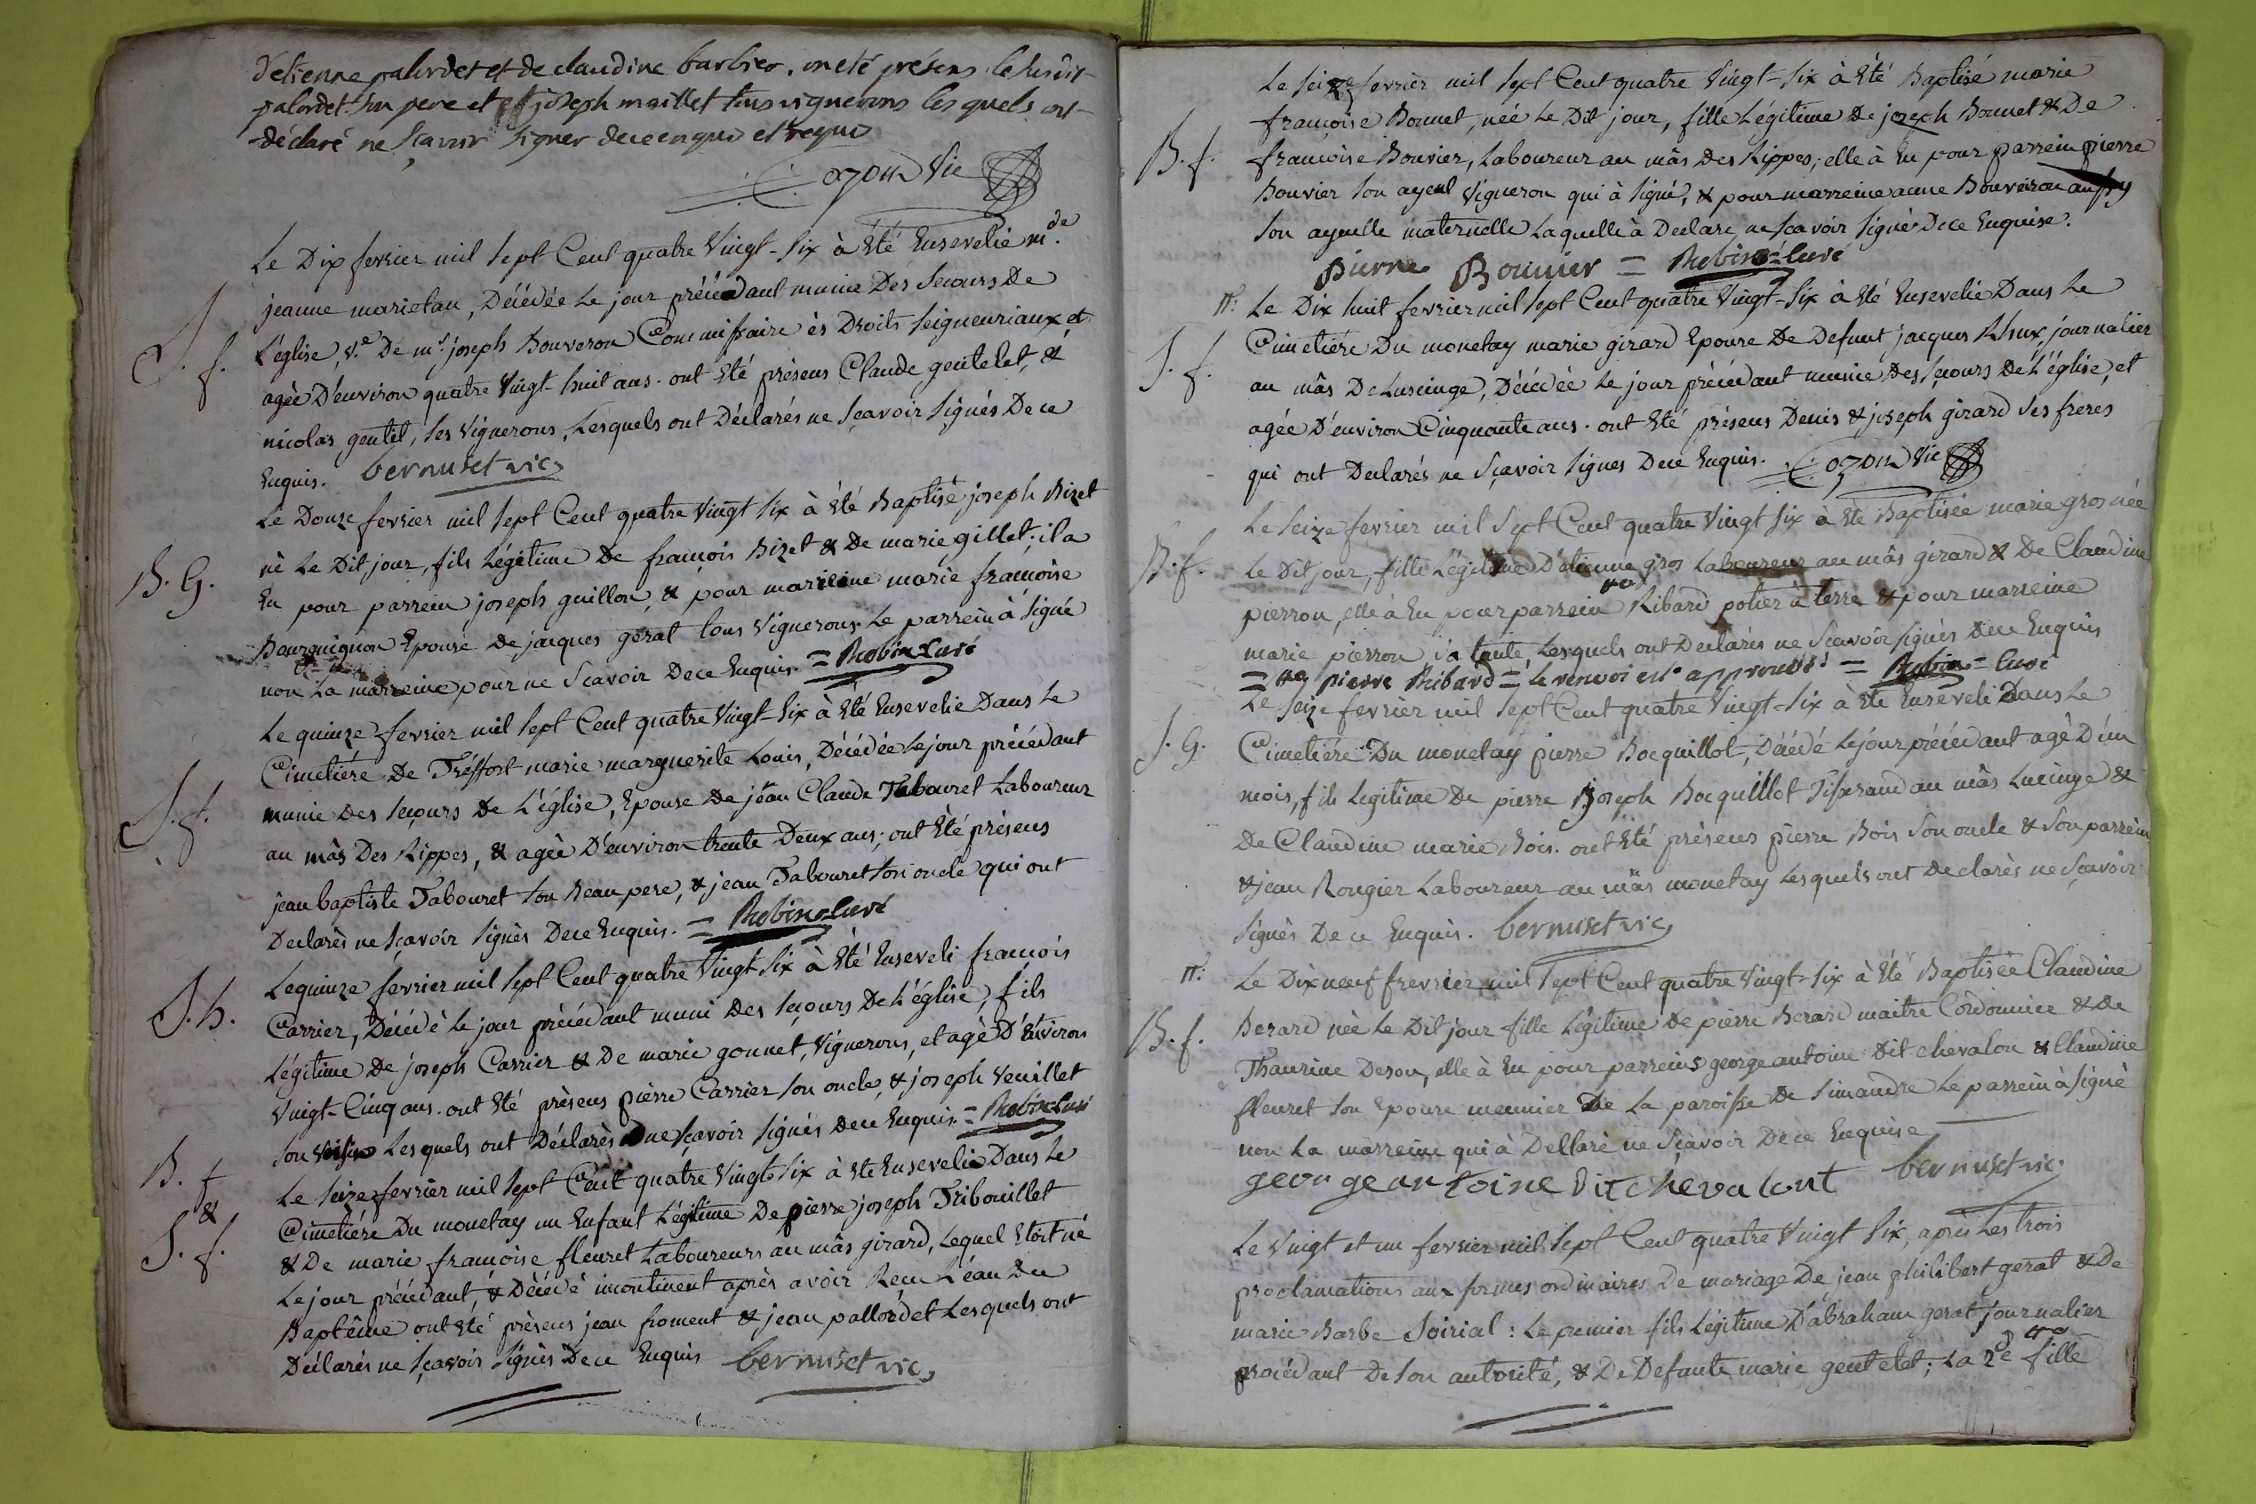 d'etienne palordet et de claudine barbier. ont été présens le susdit
palordet son pere et joseph maillet tous vignerons les quels ont
déclaré ne sçavoir signer de ce enquis et requis
Cozon vic
Le Dix fevrier mil sept Cent quatre vingt-six à été Ensevelie m.de
jeanne marietan, Décédée le jour précédant munie Des Secours De
S. f.
L'église, v.e De m.r joseph Bouveron Commissaire ès Droits Seigneuriaux, et
agée D'environ quatre vingt-huit ans. ont été présens Claude gentelet, &
nicolas gentil, ses vignerons, Lesquels ont Déclarés ne Sçavoir signés De ce
Enquis. bernuset vic
Le Douze fevrier mil sept Cent quatre vingt six à été Baptisé joseph Bizet
B. G.
né Le Dit jour, fils Légitime De francois Bizet & De marie gillet; il a
Eu pour parrein joseph guillon, & pour marreine marie francoise
Bourguignon Epouse de jacques gerat tous vignerons. Le parrein à signé
non La marreine pour ne Sçavoir De ce Enquis. = Robin curé
Le quinze fevrier mil sept Cent quatre vingt-six à été Ensevelie Dans Le
Cimetiére De Tréffort marie marguerite Louis, Décédée Le jour précédant
S. f.
munie Des Secours De L'église, Epouse De jean Claude Tabouret Laboureur
au mâs Des Rippes, & agée D'environ trente Deux ans; ont été présens
jean baptiste Tabouret son Beau pere, & jean Tabouret son oncle qui ont
Declarés ne Sçavoir signés De ce Enquis. = Robin curé
Le quinze fevrier mil sept Cent quatre vingt six à été Enseveli francois
S. h.
Carrier, Décédé Le jour précédant muni Des Secours De L'église, fils
Légitime De joseph Carrier & De marie gonnet, vignerons, et agé D'Environ
vingt-Cinq ans. ont été présens pierre Carrier son oncle, & joseph veuillet
son voisin Lesquels ont Déclarés ne Sçavoir signés De ce Enquis. = Robin curé
B. f.
& S. f.
Le Seize fevrier mil sept Cent quatre vingt six à été Ensevelie Dans Le
Cimetiére Du monetay un Enfant Légitime De pierre joseph Tribouillet
& De marie francoise fleuret Laboureurs au mâs girard, Lequel étoit né
Le jour précédant, & Décédé incontinent après avoir Reçu L'éau Du
Baptême ont été présens jean froment & jean pallordet Lesquels ont
Déclarés ne Sçavoir signés De ce Enquis bernuset vic,
Le Seize fevrier mil sept Cent quatre vingt-six à été Baptisé marie
francoise Bonnet, née Le Dit jour, fille Légitime De joseph Bonnet & De
B. f.
francoise Bouvier, Laboureur au mâs Des Rippes; elle à Eu pour parrein pierre
Bouvier son ayeul vigneron qui à signé, & pour marreine anne Bouveiron aussy
son ayeulle maternelle Laquelle à Declaré ne Sçavoir signé De ce Enquise.
pierre Bouvier = Robin curé
Le Dix huit fevrier mil sept Cent quatre vingt-six à été Ensevelie Dans Le
S. f.
Cimetiére Du monetay marie girard Epouse De Defunt jacques journalier
au mâs De Luscinge, Décédée Le jour précédant munie Des Secours De L'église, et
agée D'environ Cinquante ans. ont été présens Denis & joseph girard ses freres
qui ont Declarés ne Sçavoir signes De ce Enquis. Cozon vic
Le Seize fevrier mil sept Cent quatre vingt six à été Baptisée marie gros née
B. f.
Le Dit jour, fille Légitime D'étienne gros Laboureur au mâs girard & De Claudine
pierron, elle à Eu pour parrein Ribard potier à terre & pour marreine
marie pierron sa tante, Lesquels ont Declarés ne Sçavoir signés De ce Enquis
= pierre Ribard = Le renvoi est approuvé = Robin = curé
Le Seize fevrier mil sept Cent quatre vingt-six à été Enseveli Dans Le
S. G.
Cimetiére Du monetay pierre Bocquillot, Décédé Le jour précédant agé D'un
mois, fils Legitime De pierre joseph Bocquillot Tisserand au mâs Lucinge &
De Claudine marie Bois. ont été présens pierre Bois son oncle & son parrein
& jean Rougier Laboureur au mâs monetay Lesquels ont declarés ne Sçavoir
signés De ce Enquis. bernuset vic,
Le Dix neuf frevrier mil sept Cent quatre vingt-six à été Baptisée Claudine
B. f.
Berard née Le Dit jour fille Légitime De pierre Berard maitre Cordonnier & De
Thaurine Deson, elle à Eu pour parreins george antoine Dit chevalon & Claudine
fleuret son Epouse meunier De La paroisse De Simandre Le parrein à signé
non La marreine qui à Dellaré ne Sçavoir De ce Enquise
george antoine dit chevalont bernuset vic.
Le vingt et un fevrier mil sept Cent quatre vingt six, après Les trois
proclamations aux formes ordinaires De mariage De jean philibert gerat & De
marie Barbe Soirial: Le premier fils Légitime D'abraham gerat journalier
procédant De son autorité, & De Defunte marie gentelet; La 2.de fille